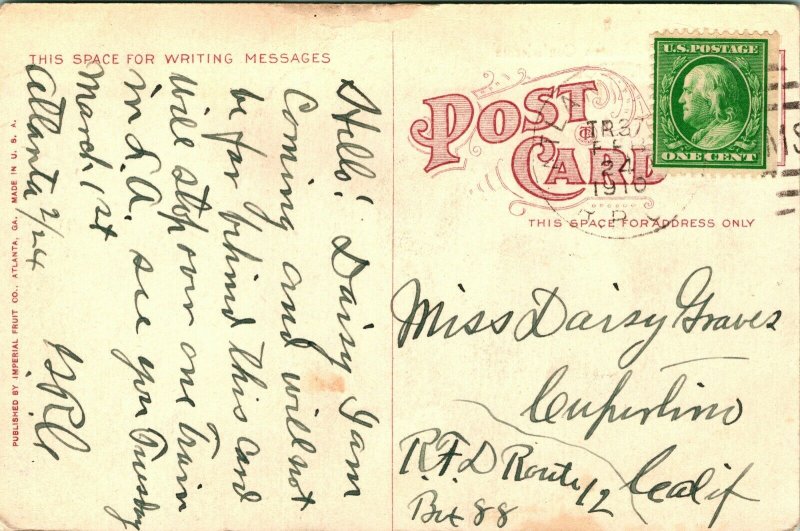 THIS SPACE FOR WRITING MESSAGES
Hello! Daisy I am
Coming and will not
be far behind this card
will stop over one Train
in L.A. see you Tuesday
March 1st
Atlanta 2/24
PUBLISHED BY IMPERIAL FRUIT CO., ATLANTA, GA. MADE IN U. S. A.
POST
CARD
THIS SPACE FOR ADDRESS ONLY
U.S. POSTAGE
ONE CENT
TR37
FEB
24
1910
MS
Miss Daisy Graves
Cupertino
R.F.D Route 12 Calif
Bx 88